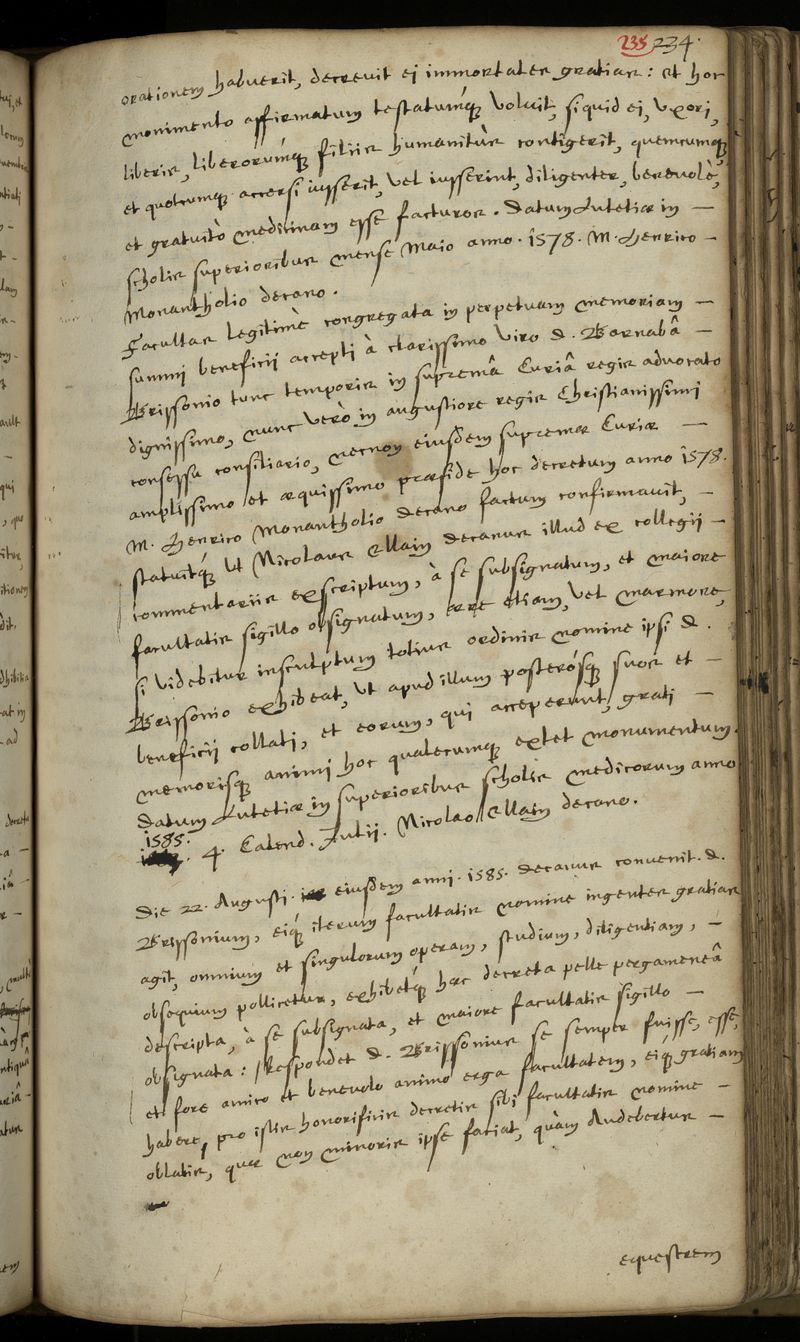 235 234.
orationem habuerit, decreuit ei immortales gratias: et hoc
monimento affirmatum testatumq́ue voluit, siquid ei, vxori,
liberis, liberorúmque filiis humanitùs contigerit, quemcumque
et quotcumque accersi iusserit, vel iusserint, diligenter, beneuolè,
et gratuitò medicinam esse facturos. Datum Lutetiæ in —
scholis superioribus mense Maio anno. 1578. M. Henrico —
Monantholio decano.
Facultas legitimè congregata in perpetuam memoriam —
summi beneficii accepti à clarissimo viro D. Barnabâ —
Brissonio tunc temporis in supremâ Curiâ regis aduocato
dignissimo, nunc verò in augustiore regis Christianissimi
consessu consiliario, necnon eiusdem supremæ Curiæ —
amplissimo et æquissimo præside hoc decretum anno 1578.
M. Henrico Monantholio decano factum confirmauit, —
statuitq́ue vt Nicolaus Ellain decanus illud ex collegii —
commentariis exscriptum, à se subsignatum, et maiore
facultatis sigillo obsignatum, ære etiam, vel marmore,
si videbitur insculptum totius ordinis nomine ipsi D.
Brissonio exhibeat, vt apud illum posterósque suos et —
beneficii collati, et eorum, qui acceperunt, grati —
memorisque animi hoc qualecumque extet monumentum.
Datum Lutetiæ in superioribus scholis medicorum anno
1585. 4. Calend. Julii. Nicolao Ellain decano.
Die 22. Augusti. eiusdem anni. 1585. decanus conuenit. D.
Brissonium, eiq́ue iterum facultatis nomine ingentes gratias
agit, omnium et singulorum operam, studium, diligentiam, —
obsequium pollicetur, exhibetq́ue hæc decreta pelle pergameneâ
descripta, à se subsignata, et maiore facultatis sigillo —
obsignata: Respondet D. Brissonius se semper fuisse, esse,
et fore amico et beneuolo animo erga facultatem, eiq́ue gratiam
habere, pro istis honorificis decretis sibi facultatis nomine —
oblatis, quæ non minoris ipse faciat, quàm Audebertus —
equestrem